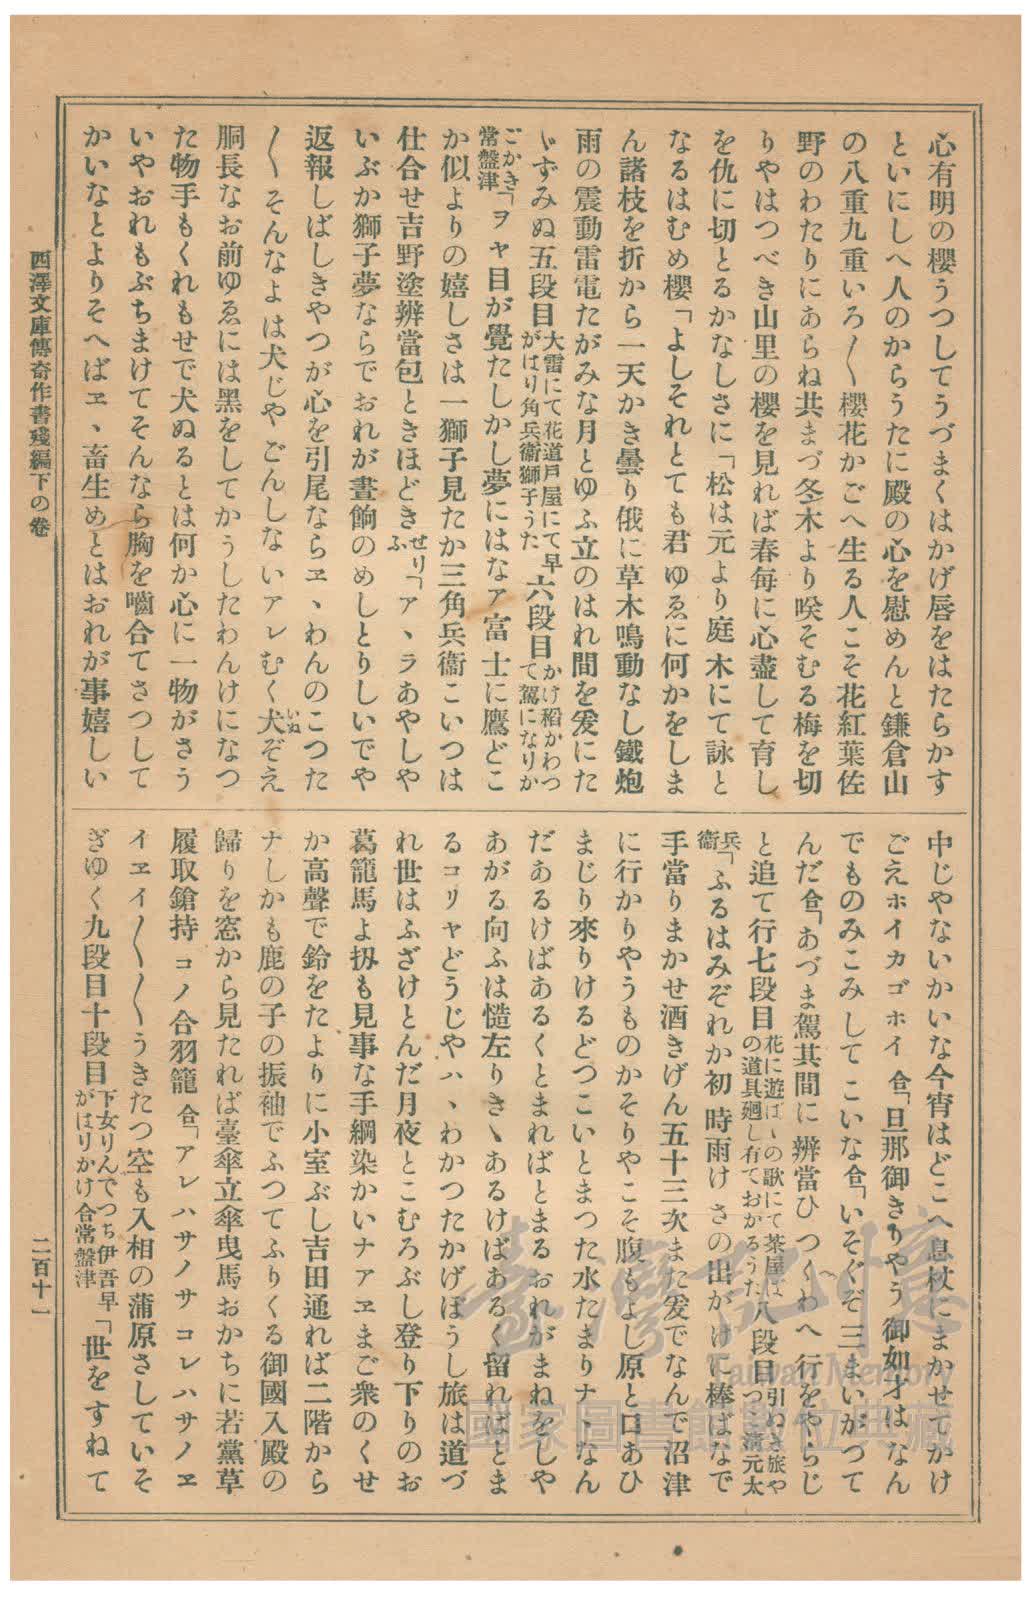 心有明の櫻うつしてうづまくはかげ唇をはたらかす
といにしへ人のからうたに殿の心を慰めんと鎌倉山
の八重九重いろ〳〵櫻花かごへ生る人こそ花紅葉佐
野のわたりにあらね共まづ冬木より咲そむる梅を切
りやはつべき山里の櫻を見れば春毎に心盡して育し
を仇に切とるかなしさに「松は元より庭木にて詠と
なるはむめ櫻「よしそれとても君ゆゑに何かをしま
ん諸枝を折から一天かき曇り俄に草木鳴動なし鐵炮
雨の震動雷電たがみな月とゆふ立のはれ間を爰にた
ゝずみぬ五段目 大雷にて花道戸屋にて早がはり角兵衞獅子うた 六段目 かけ稻かわつて駕になりか
ごかき常盤津「ヲヤ目が覺たしかし夢にはなア富士に鷹どこ
か似よりの嬉しさは一獅子見たか三角兵衞こいつは
仕合せ吉野塗辨當包ときほどき せりふ「アヽラあやしや
いぶか獅子夢ならでおれが晝餉のめしとりしいでや
返報しばしきやつが心を引尾ならヱヽわんのこつた
〳〵そんなよは犬じやごんしないアレむく犬いぬぞえ
胴長なお前ゆゑには黑をしてかうしたわんけになつ
た物手もくれもせで犬ぬるとは何か心に一物がさう
いやおれもぶちまけてそんなら胸を嚙合てさつして
かいなとよりそへばヱヽ畜生めとはおれが事嬉しい
中じやないかいな今宵はどこへ息杖にまかせてかけ
ごえホイカゴホイ 合「旦那御きりやう御如才はなん
でものみこみしてこいな合「いそぐぞ三まいがつて
んだ合「あづま駕其間に辨當ひつくわへ行をやらじ
と追て行七段目 花に遊ばゝの歌にて茶屋はの道具廻し有ておかるうた 八段目 引ぬき旅やつこ淸元太
兵衞「ふるはみぞれか初時雨けさの出がけに棒ばなで
手當りまかせ酒きげん五十三次また爰でなんで沼津
に行かりやうものかそりやこそ腹もよし原と口あひ
まじり來りけるどつこいとまつた水たまりナヽなん
だあるけばあるくとまればとまるおれがまねをしや
あがる向ふは慥左りきゝあるけばあるく留ればとま
るコリヤどうじやハヽわかつたかげぼうし旅は道づ
れ世はふざけとんだ月夜とこむろぶし登り下りのお
葛籠馬よ扨も見事な手綱染かいナアヱまご衆のくせ
か高聲で鈴をたよりに小室ぶし吉田通れば二階から
ナしかも鹿の子の振袖でふつてふりくる御國入殿の
歸りを窓から見たれば臺傘立傘曳馬おかちに若黨草
履取鎗持コノ合羽籠 合「アレハサノサコレハサノヱ
イヱイ〳〵〳〵うきたつ空も入相の蒲原さしていそ
ぎゆく九段目十段目 下女りんでつち伊吾早がはりかけ合常盤津「世をすねて
西澤文庫傳奇作書殘編下の卷
二百十一
臺灣記憶
Taiwan Memory
國家圖書館數位典藏